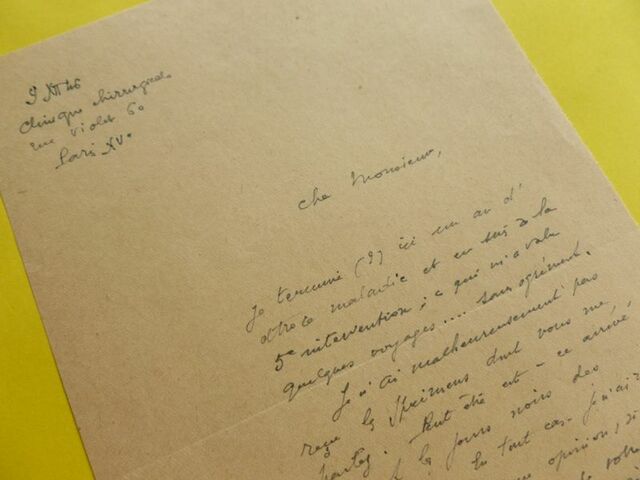 9 XII 46
Clinique chirurgicale
rue Violet 60
Paris XVe
Cher Monsieur,
Je termine (?) ici un an d'
atroce maladie et en suis à la
5e intervention; ce qui m'a valu
quelques voyages.... sans agrément.
Je n'ai malheureusement pas
reçu les Specimens dont vous me
parlez. Peut être est-ce arrivé,
les jours noirs des
En tout cas j'aurais
opinion, si
votre